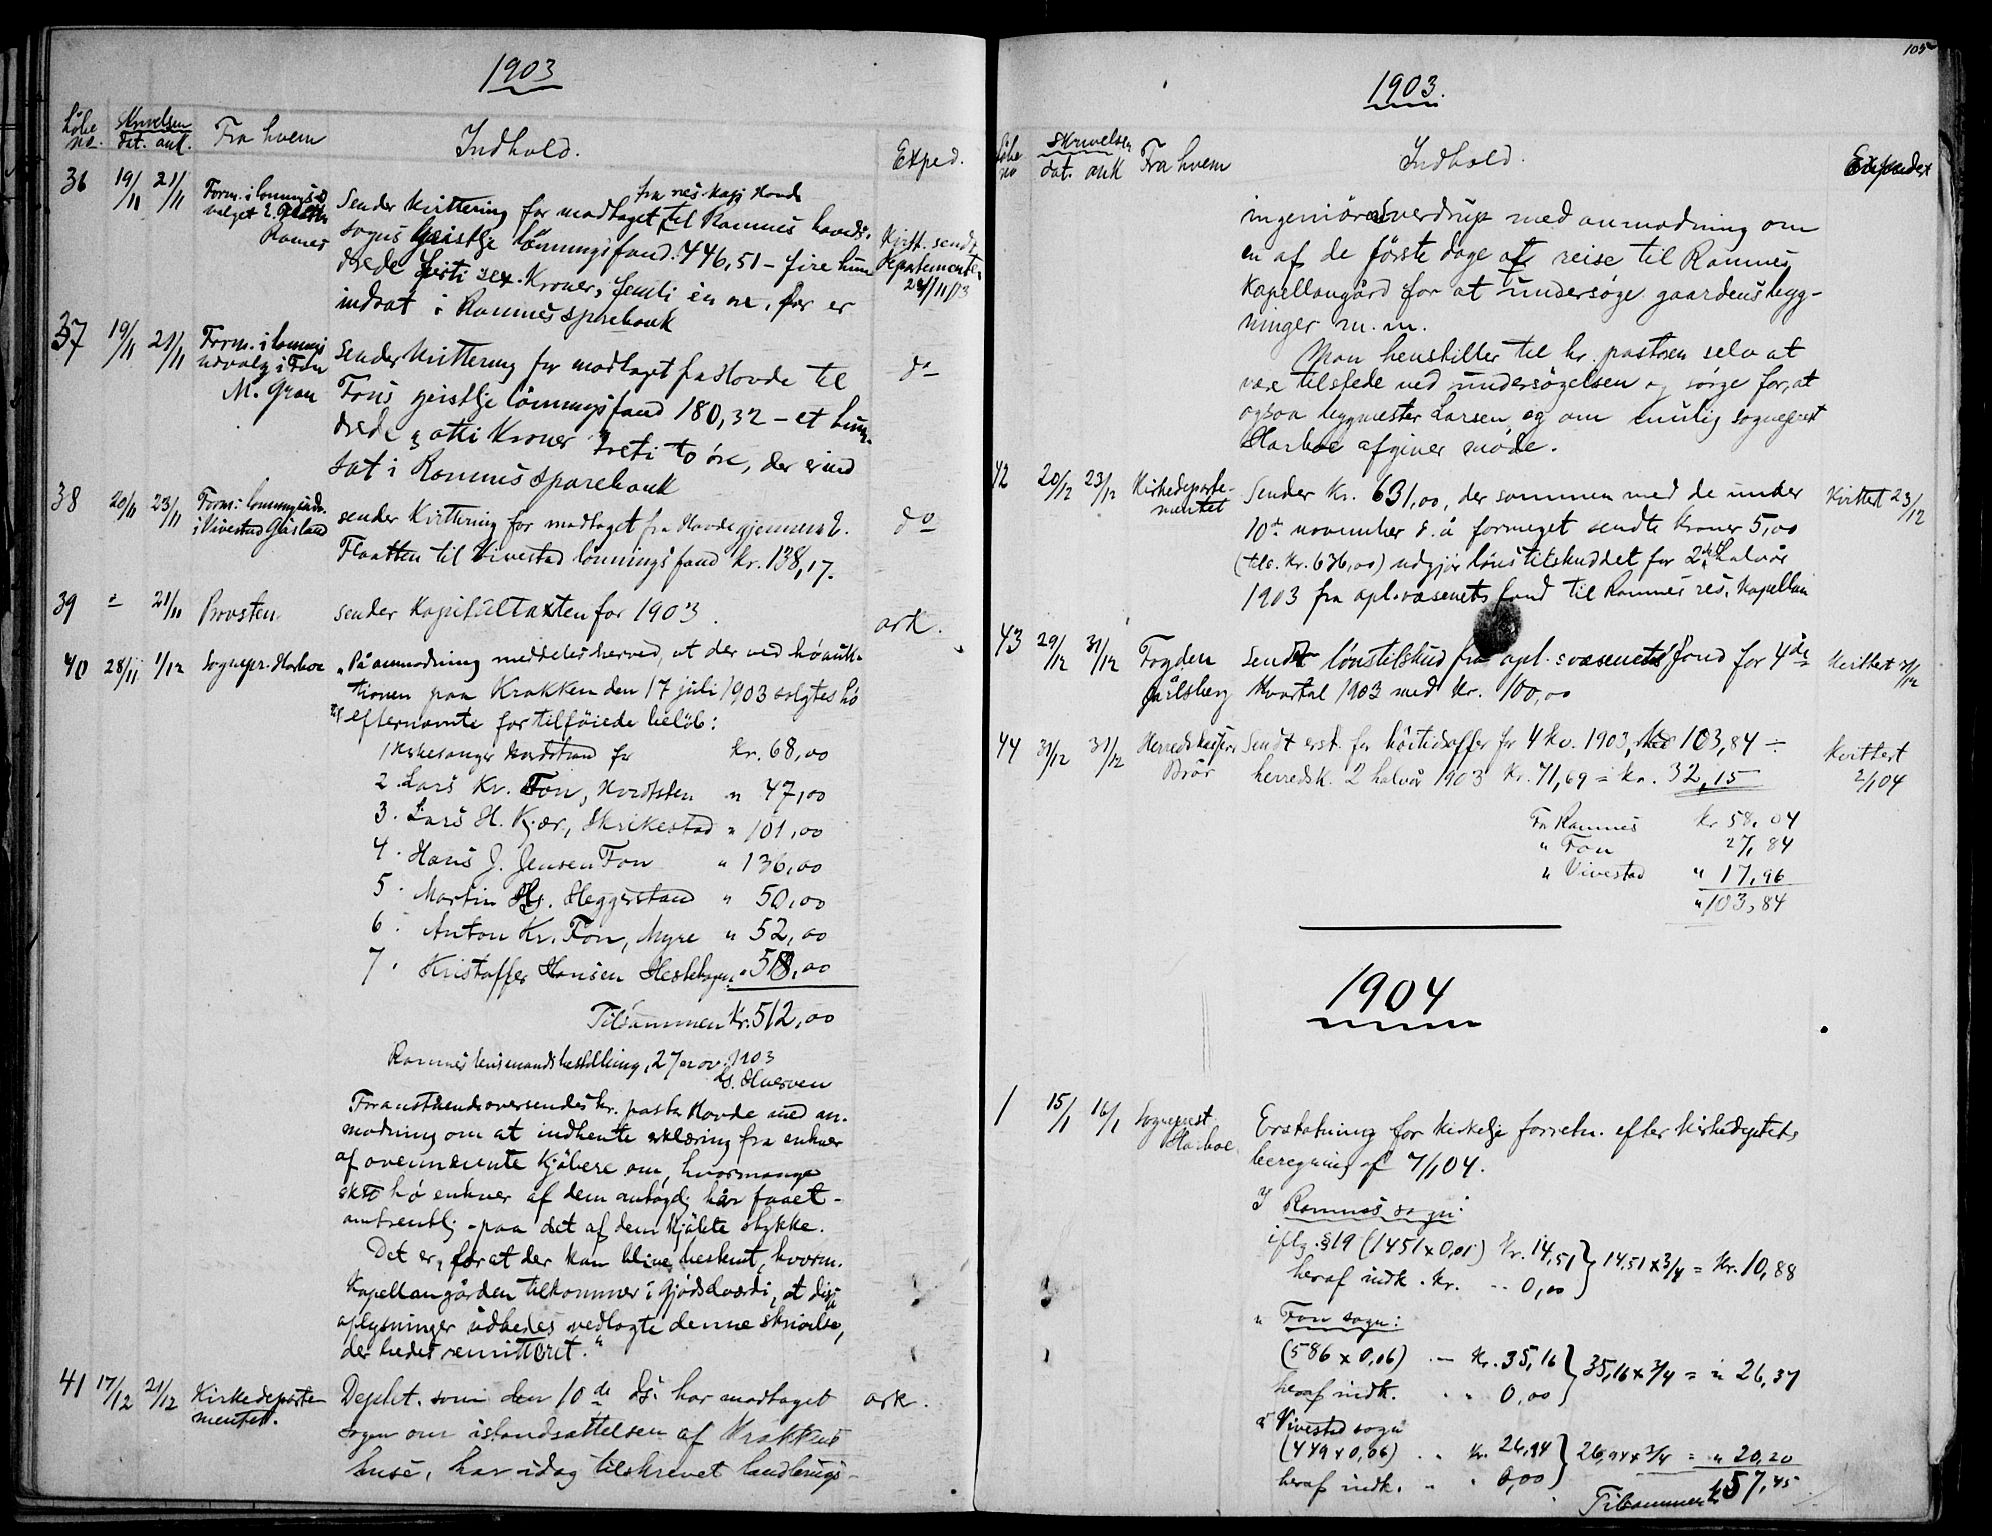 1903
Løbe no. Skrivelsen dat. ank. Fra hvem Indhold. Exped.
36 19/11 21/11 Form. i lønnings-
valget E.
Ramnes
fra res. kap. Hovde
Sender Kvittering for modtaget til Ramnes hoved-
sogns geistlje lønningsfond 446,51 – fire hun-
drede førti sex Kroner, femti en øre, der er
indsat i Ramnes sparebank
Kvitt. sendt
departementet
24/11/03
37 19/11 21/11 Form. i lønnings
udvalg i Fon
M. Gran
sender Kvittering for modtaget fra Hovde til
Fons geistlje lønningsfond 180,32 – et hun-
drede og otti Kroner treti to øre, der er ind
sat i Ramnes sparebank
do
38 20/11 23/11 Form. i lønningsudv.
i Vivestad
sender Kvittering for modtaget fra Hovde gjennem E.
Flaatten til Vivestad lønningsfond kr. 138,17.
do
39 21/11 Provsten sender Kapitaltaxten for 1903. ark.
40 28/11 1/12 Sognepr. Harboe „Paa anmodning meddeles herved, at der ved høauk-
tionen paa Krakken den 17 juli 1903 solgtes hø
til efternævnte for tilføiede beløb:
1 Kirkesanger Nordstrand for kr. 68,00
2. Lars Kr. Fon, Nordtsten „ 47,00
3. Lars H. Kjær, Skrikestad „ 101,00
4. Hans J. Jensen Fon „ 136,00
5. Martin Hs. Heggerstand „ 50,00
6. Anton Kr. Fon, Myre „ 52,00
7. Kristoffer Hansen Hestehagen „ 58,00
Tilsammen Kr. 512,00
Ramnes lensmandsbestilling, 27 nov. 1903
Foranstaaende oversendes hr. pastor Hovde med an-
modning om at indhente erklæring fra enhver
af ovennævnte kjøbere om, hvormange
hø enhver af dem antagelig har faaet –
omtrentlig – paa det af dem kjøbte stykke.
Det er, for at der kan blive bestemt, hvorm.
Kapellangården tilkommer i gjødselværdi, at disse
oplysninger udbedes vedlagte denne skrivelse,
der bedes remitteret.“
41 17/12 21/12 Kirkedeparte-
mentet.
Depht. som den 10de ds. har modtaget
sagen om istandsættelsen af Krakkens
huse, har idag tilskrevet landbrugs-
ark.
105
1903.
Løbe no Skrivelsen dat. ank Fra hvem Indhold. Expedert
ingeniør Sverdrup med anmodning om
en af de første dage at reise til Ramnes
Kapellangård for at undersøge gaardens byg-
ninger m. m.
Man henstiller til hr. pastoren selv at
være tilstede ved undersøgelsen og sørge for, at
ogsaa bygmester Larsen, og om mulig sogneprest
Harboe afgiver møde.
42 20/12 23/12 Kirkedeparte-
mentet
Sender Kr. 631,00, der sammen med de under
10de november d. å formeget sendte Kroner 5,00
(tils. Kr. 636,00) udgjør lønstilskuddet for 2det halvår
1903 fra opl.væsenets fond til Ramnes res. Kapellani
Kvittert 23/12
43 29/12 31/12 Fogden
Jarlsberg
Sendt lønstilskud fra opl.svæsenets fond for 4de
Kvartal 1903 med Kr. 100,00
Kvittert
44 31/12 31/12 Herredskasserer
Brår
Sendt erst. for høitidsoffer for 4 kv. 1903, 103,84 ÷
herredsk. 2 halvår 1903 Kr. 71,69 = kr. 32,15
Kvittert
2/1 04
Fra Ramnes kr 58,04
„ Fon 27,84
„ Vivestad „ 17,96
„ 103,84
1904
1 15/1 16/1 Sogneprest
Harboe.
Erstatning for kirkelje forretn. efter kirkedeptets
beregning af 7/1 04.
I Ramnes sogn:
iflg. §19 (1451 x 0,01) Kr. 14,51 } 14,51 x 3/4 = Kr. 10,88
heraf indk. Kr. 0,00
„ Fon sogn:
(586 x 0,06) – Kr. 35,16 } 35,16 x 3/4 = „ 26,37
heraf indk. „ 0,00
„ Vivestad sogn
(449 x 0,06) „ Kr. 26,94 } 26,94 x 3/4 = „ 20,20
heraf indk. „ „ 0,00
Tilsammen kr 57,45